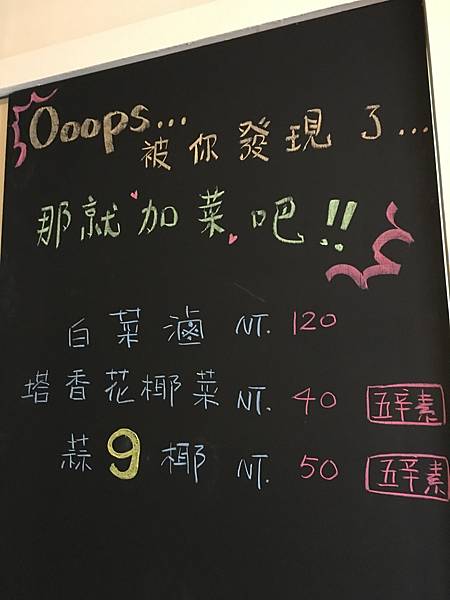 Ooops...
被你發現了...
那就加菜吧!!
白菜滷 NT. 120
塔香花椰菜 NT. 40 五辛素
蒜9椰 NT. 50 五辛素